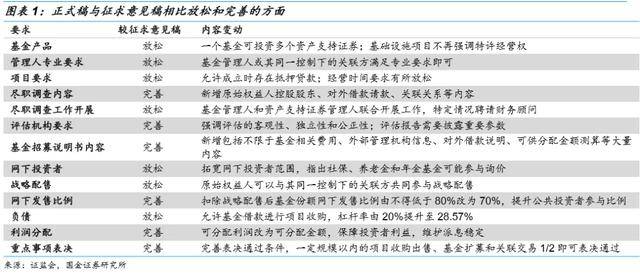 图表1：正式稿与征求意见稿相比放松和完善的方面
要求 较征求意见稿 内容变动
基金产品 放松 一个基金可投资多个资产支持证券；基础设施项目不再强调特许经营权
管理人专业要求 放松 基金管理人或其同一控制下的关联方满足专业要求即可
项目要求 放松 允许成立时存在抵押贷款；经营时间要求有所放松
尽职调查内容 完善 新增原始权益人控股股东、对外借款、关联关系等内容
尽职调查工作开展 放松 基金管理人和资产支持证券管理人联合开展工作，特定情况聘请财务顾问
评估机构要求 完善 强调评估的客观性、独立性和公正性；评估报告需要披露重要参数
基金招募说明书内容 完善 新增包括不限于基金相关费用、外部管理机构信息、对外借款说明、可供分配金额测算等大量
内容
网下投资者 放松 拓宽网下投资者范围，指出社保、养老金和年金基金可能参与询价
战略配售 放松 原始权益人可以与其同一控制下的关联方共同参与战略配售
网下发售比例 完善 扣除战略配售后基金份额网下发售比例由不得低于80%改为70%，提升公共投资者参与比例
负债 放松 允许基金借款进行项目收购，杠杆率由20%提升至28.57%
利润分配 完善 可分配利润改为可分配金额，保障投资者利益，维护派息稳定
重点事项表决 完善 完善表决通过条件，一定规模以内的项目收购出售、基金扩募和关联交易1/2即可表决通过
来源：证监会，国金证券研究所